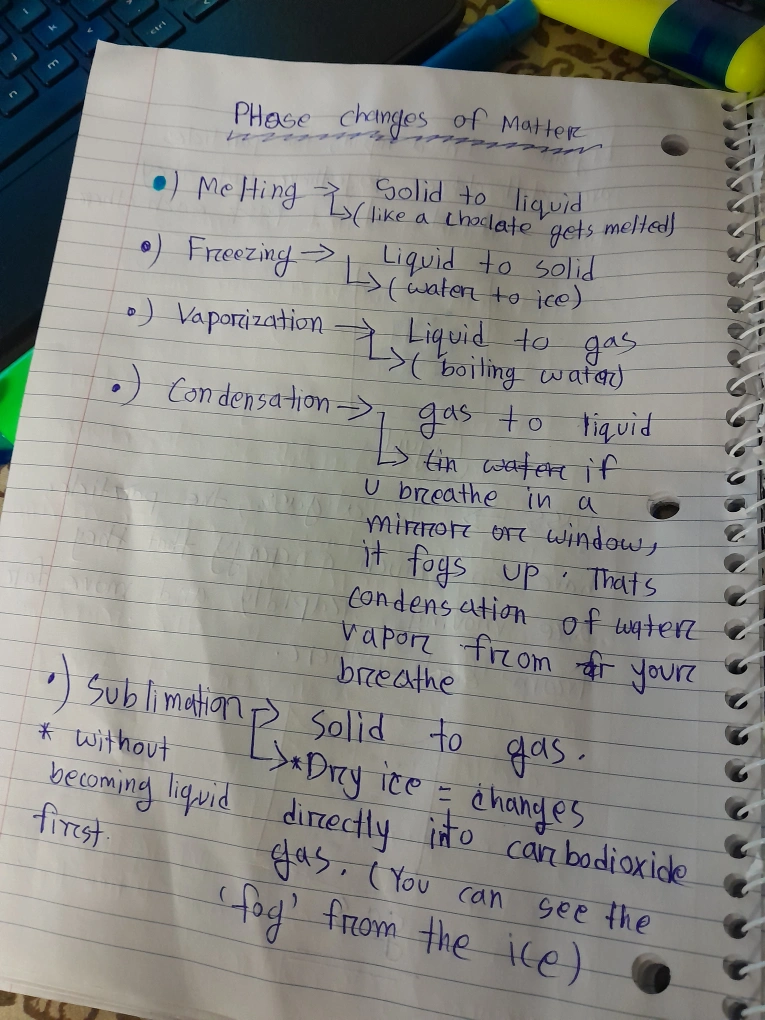 PHase changes of Matter
•) Melting → Solid to liquid
↳ (like a choclate gets melted)
•) Freezing → Liquid to solid
↳ (water to ice)
•) Vaporization → Liquid to gas
↳ (boiling water)
•) Condensation → gas to liquid
↳ tin water if
u breathe in a
mirror or window,
it fogs up. Thats
condensation of water
vapor from your
breathe
•) Sublimation → Solid to gas.
* without
becoming liquid
first.
↳ *Dry ice = changes
directly into carbodioxide
gas. (You can see the
'fog' from the ice)
ctrl